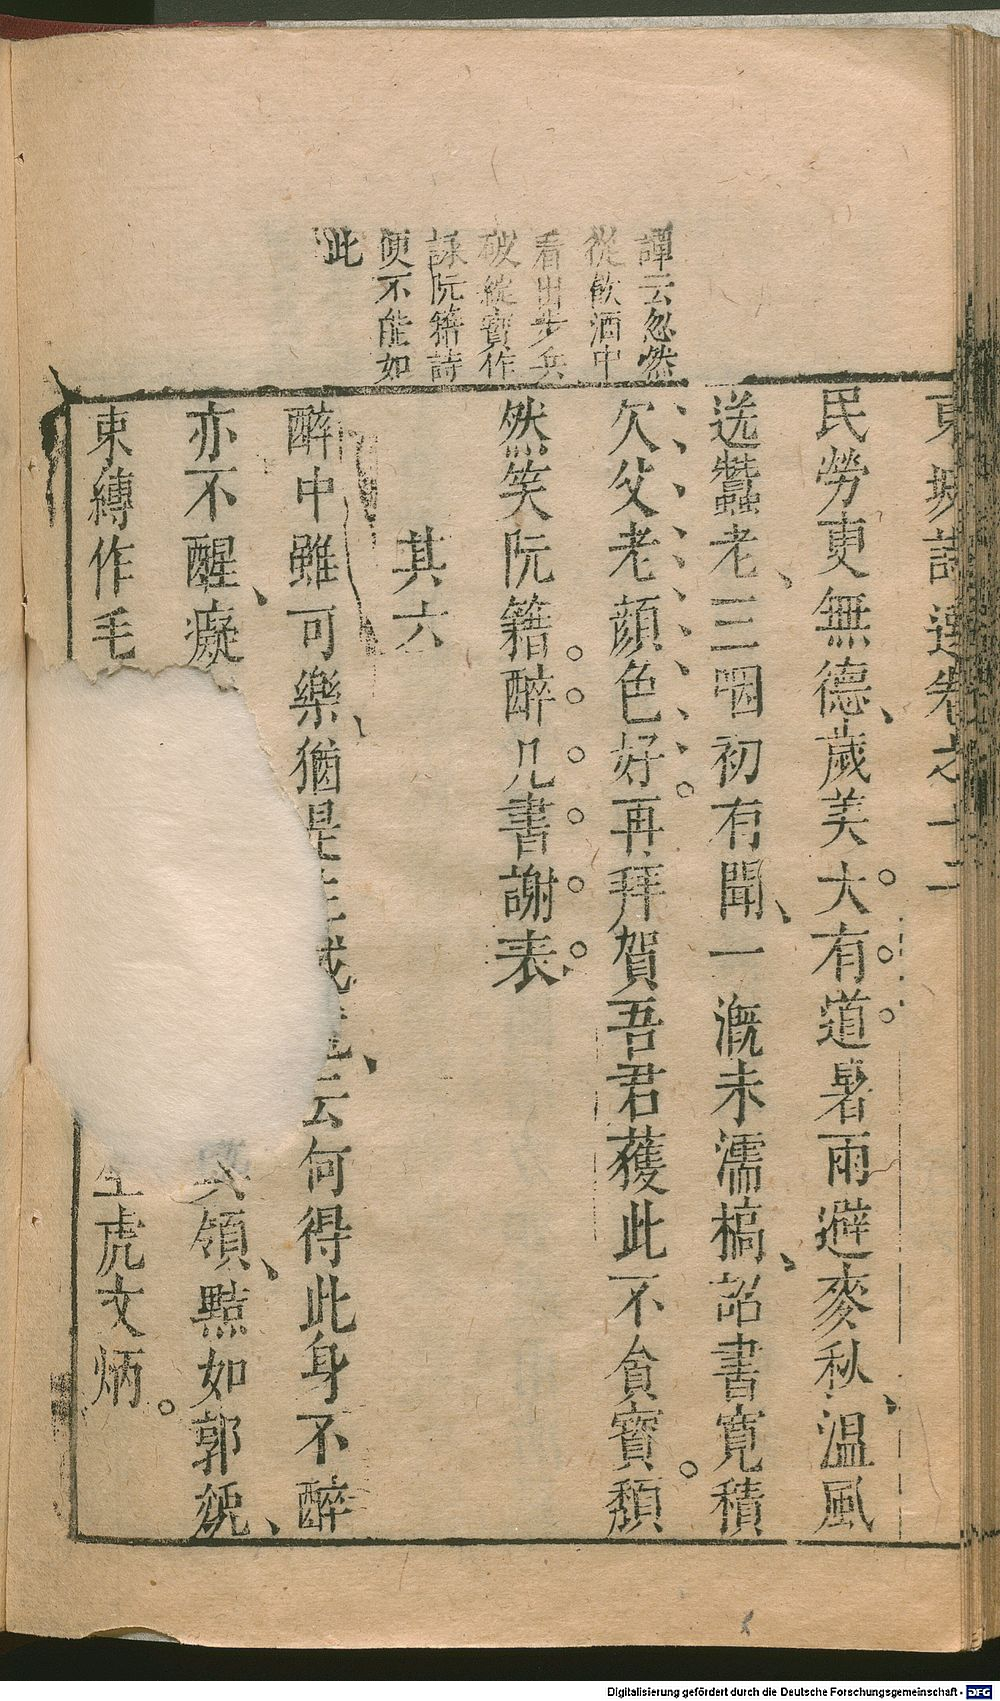 譚云忽然
從飲酒中
看出步兵
破綻寶作
詠阮籍詩
便不能如
此
東坡詩選卷之十二
民勞吏無德、歲美大有道。暑雨避麥秋、溫風
送蠶老、三咽初有聞、一漑未濡槁、詔書寬積
欠父老顔色好。再拜賀吾君獲此不貪寶。頽
然笑阮籍醉几書謝表
其六
醉中雖可樂、猶是生滅云何得此身不醉
亦不醒、癡其領、黠如郭
束縛作毛虎文炳。
Digitalisierung gefördert durch die Deutsche Forschungsgemeinschaft - DFG